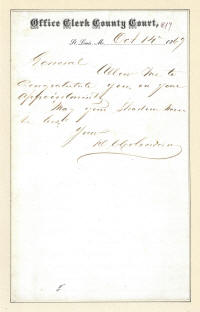 Office Clerk County Court,
St. Louis, Mo. Oct 14 1867
General
Allow me to
Congratulate you on your
appointment
May your Shadow never
be less
Yours